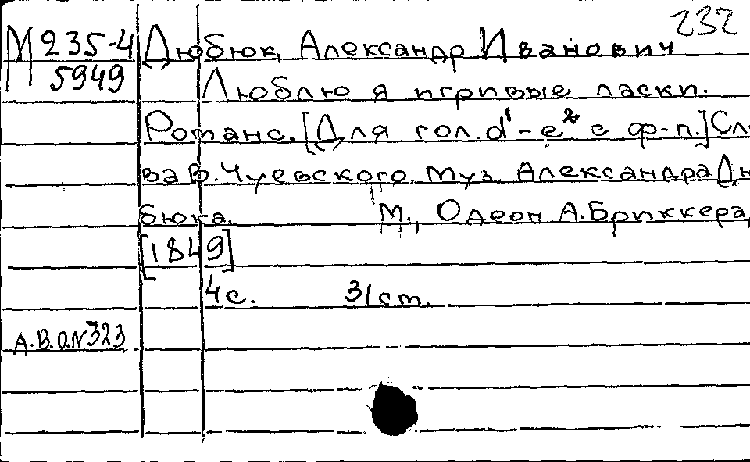 232
М 235-4 Дюбюк, Александр Иванович
5949
Люблю я игривые ласки.
Романс. [Для гол. d¹-e² с ф-п.] Сло
ва В. Чуевского. Муз. Александра Дю
бюка. М., Одеон А. Бриккера,
[1849]
4 с. 31 ст.
А.В.О.N 323